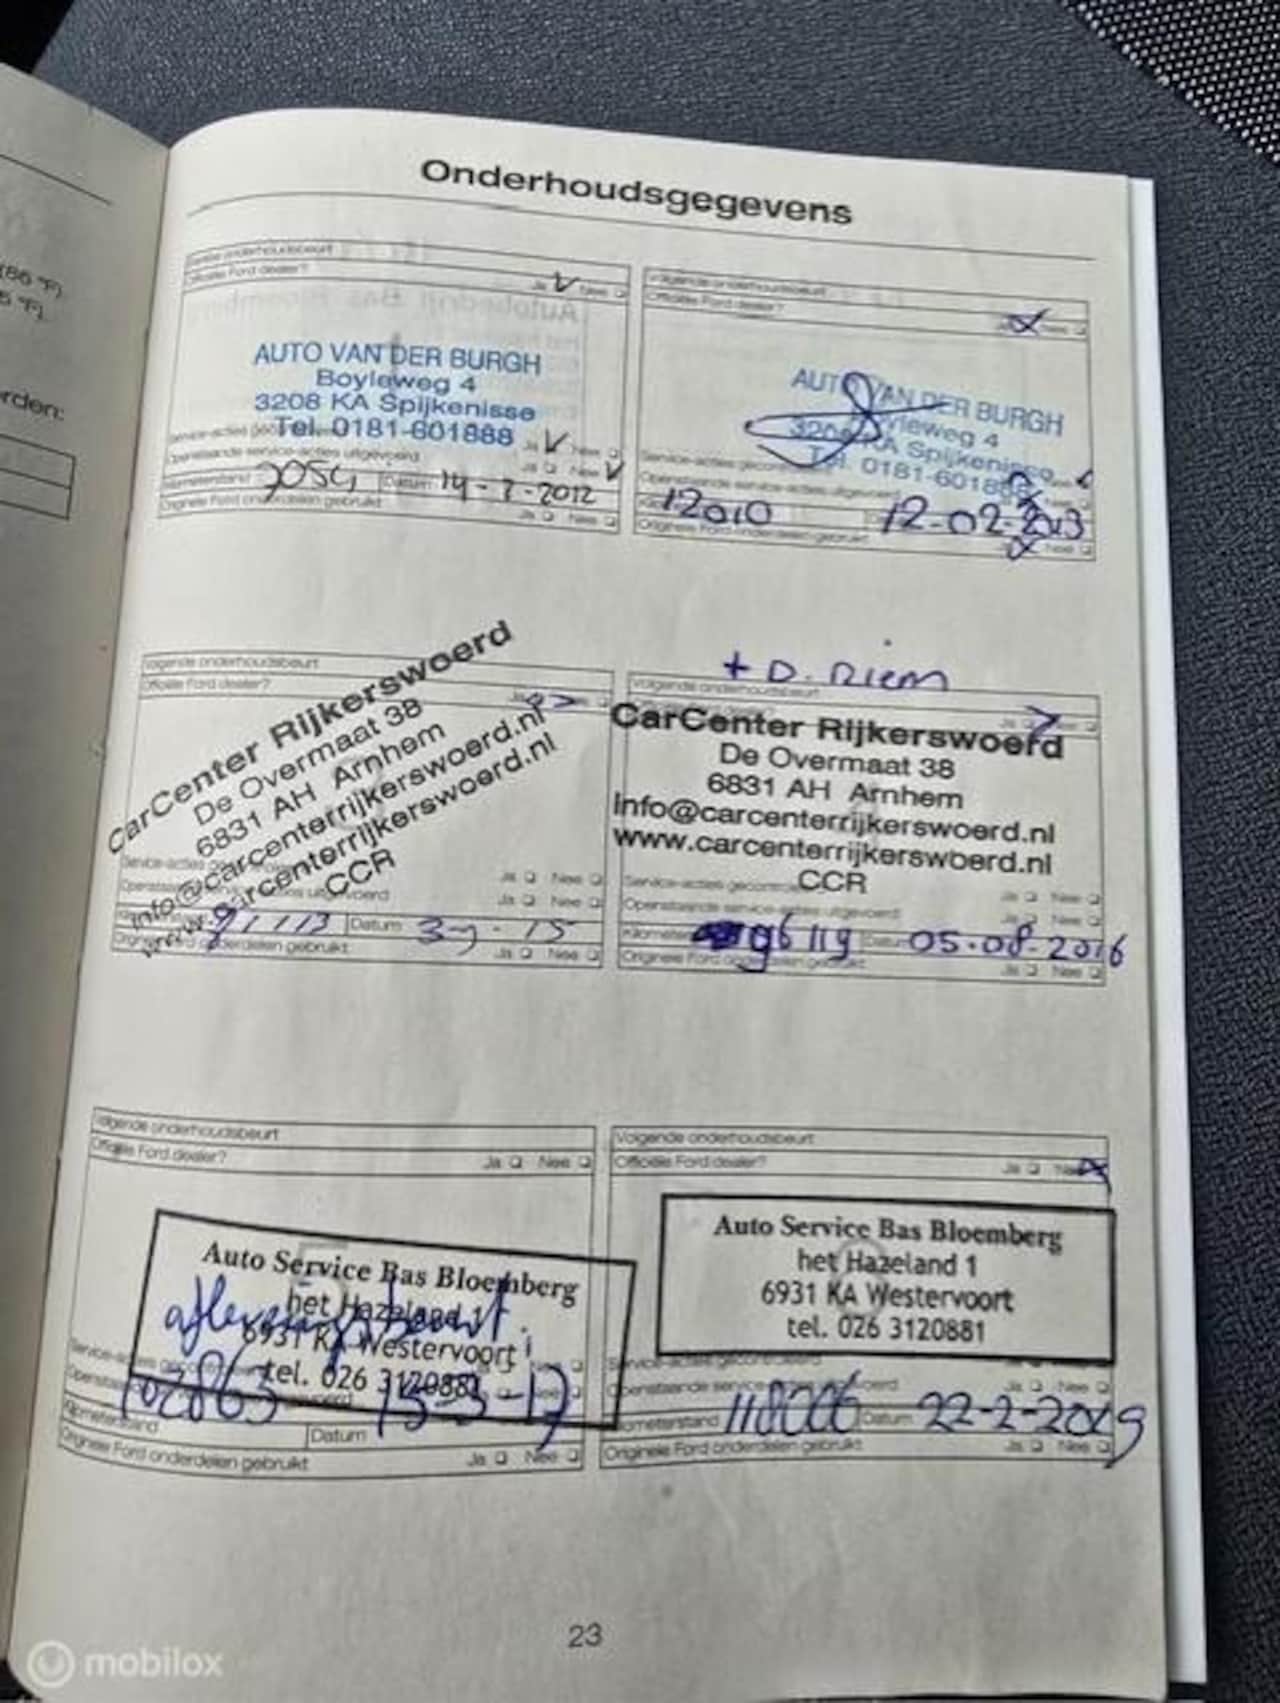 (86 °F)
5 °F)
rden:
Onderhoudsgegevens
Officiële Ford dealer?
Ja Nee
AUTO VAN DER BURGH
Boyleweg 4
3208 KA Spijkenisse
Tel. 0181-601888
Ja Nee
Openstaande service-acties uitgevoerd
Ja Nee
Datum
Originele Ford onderdelen gebruikt
Ja Nee
Volgende onderhoudsbeurt
Officiële Ford dealer?
Nee
AUTO VAN DER BURGH
Boyleweg 4
3208 KA Spijkenisse
Tel. 0181-601888
12010
12-02-2013
Originele Ford onderdelen gebruikt
Nee
Volgende onderhoudsbeurt
Officiële Ford dealer?
CarCenter Rijkerswoerd
De Overmaat 38
6831 AH Arnhem
info@carcenterrijkerswoerd.nl
www.carcenterrijkerswoerd.nl
CCR
Ja Nee
Openstaande service-acties uitgevoerd
Ja Nee
Datum
Originele Ford onderdelen gebruikt
Ja Nee
+ D. Riem
Volgende onderhoudsbeurt
CarCenter Rijkerswoerd
De Overmaat 38
6831 AH Arnhem
Info@carcenterrijkerswoerd.nl
www.carcenterrijkerswoerd.nl
CCR
Ja Nee
Openstaande service-acties uitgevoerd
Ja Nee
96119
05-08-2016
Originele Ford onderdelen gebruikt
Ja Nee
Volgende onderhoudsbeurt
Officiële Ford dealer?
Ja Nee
Auto Service Bas Bloemberg
het Hazeland 1
afleveringsbeurt.
6931 KA Westervoort
tel. 026 3120881
102863
15-3-17
Kilometerstand
Datum
Originele Ford onderdelen gebruikt
Ja Nee
Volgende onderhoudsbeurt
Officiële Ford dealer?
Ja Nee
Auto Service Bas Bloemberg
het Hazeland 1
6931 KA Westervoort
tel. 026 3120881
Service-acties gecontroleerd
Ja Nee
Openstaande service-acties uitgevoerd
Ja Nee
Kilometerstand 118006 Datum 22-2-2019
Originele Ford onderdelen gebruikt
Ja Nee
23
mobilox